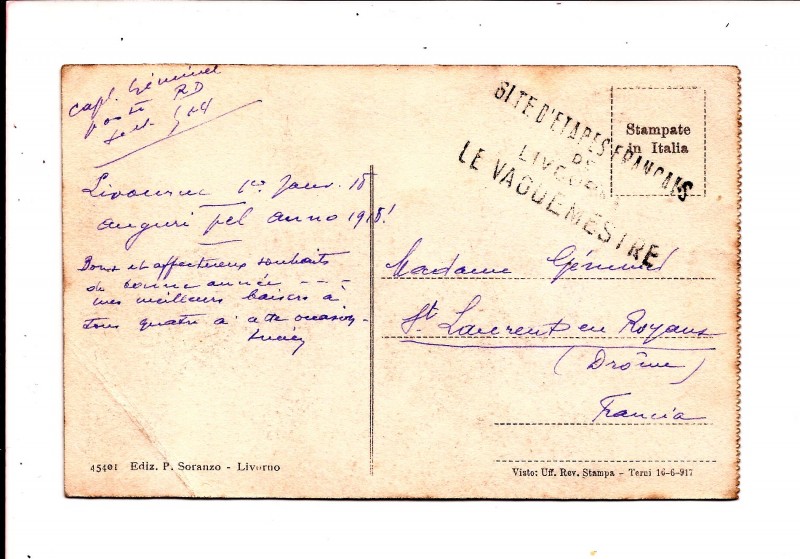 Capt. Géminel
poste RD
sect. 514
GITE D'ETAPES FRANCAIS
DE
LIVOURNE
LE VAGUEMESTRE
Stampate
in Italia
Livourne 1er Janv. 18
auguri pel anno 1918!
Bons et affectueux souhaits
de bonne année ---
mes meilleurs baisers à
tous quatre à occasion -
Madame Géminel
St. Laurent en Royans
(Drôme)
Francia
45401 Ediz. P. Soranzo - Livorno
Visto: Uff. Rev. Stampa - Terni 16-6-917